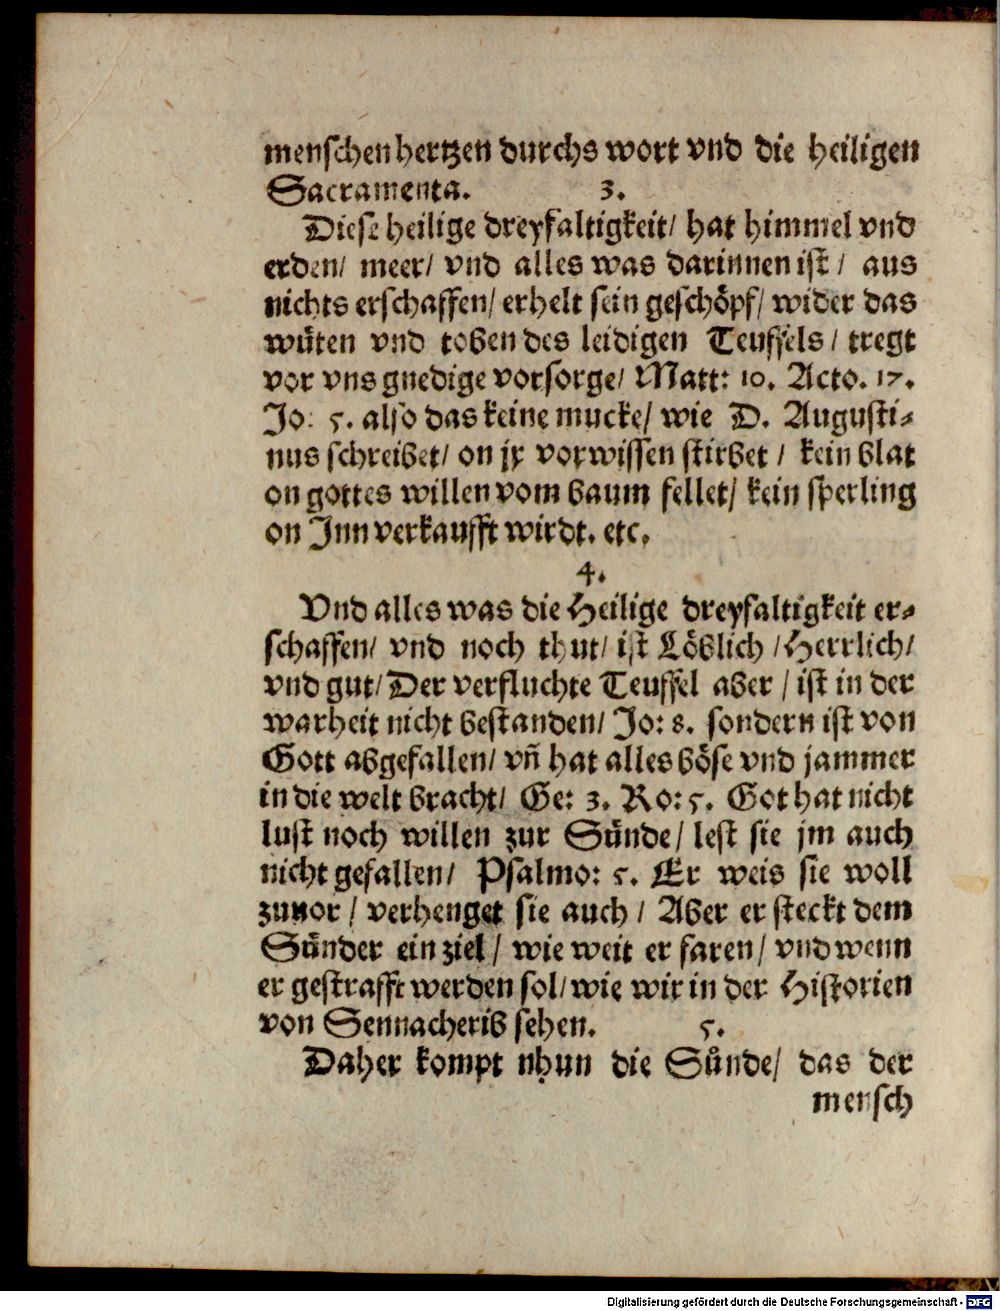 menschen hertzen durchs wort vnd die heiligen
Sacramenta. 3.
Diese heilige dreyfaltigkeit/ hat himmel vnd
erden/ meer/ vnd alles was darinnen ist / aus
nichts erschaffen/ erhelt sein geschöpf/ wider das
wüten vnd toben des leidigen Teuffels / tregt
vor vns gnedige vorsorge/ Matt: 10. Acto. 17.
Jo: 5. also das keine mucke/ wie D. Augusti-
nus schreibet/ on jr vorwissen stirbet / kein blat
on gottes willen vom baum fellet/ kein sperling
on Inn verkaufft wirdt. etc.
4.
Vnd alles was die Heilige dreyfaltigkeit er-
schaffen/ vnd noch thut/ ist Löblich / Herrlich/
vnd gut/ Der verfluchte Teuffel aber / ist in der
warheit nicht bestanden/ Jo: 8. sondern ist von
Gott abgefallen/ vñ hat alles böse vnd jammer
in die welt bracht/ Ge: 3. Ro: 5. Got hat nicht
lust noch willen zur Sünde/ lest sie jm auch
nicht gefallen/ Psalmo: 5. Er weis sie woll
zunor / verhenget sie auch / Aber er steckt dem
Sünder ein ziel/ wie weit er faren/ vnd wenn
er gestrafft werden sol/ wie wir in der Historien
von Sennacherib sehen. 5.
Daher kompt nhun die Sünde/ das der
mensch
Digitalisierung gefördert durch die Deutsche Forschungsgemeinschaft - DFG